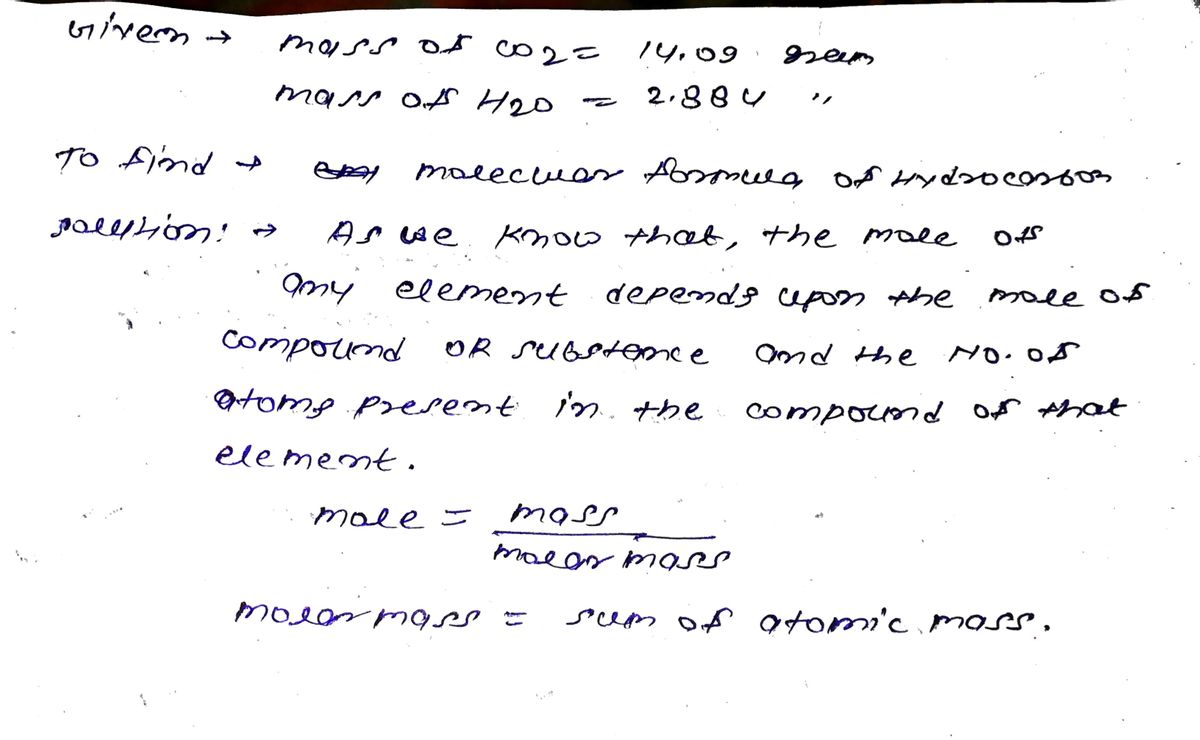 Given → mass of CO2 = 14.09 gram
mass of H2O = 2.884 "
To find → molecular formula of Hydrocarbon
solution: → As we know that, the mole of
any element depends upon the mole of
compound OR substance and the NO. of
atoms present in the compound of that
element.
mole = mass
molar mass
molar mass = sum of atomic mass.